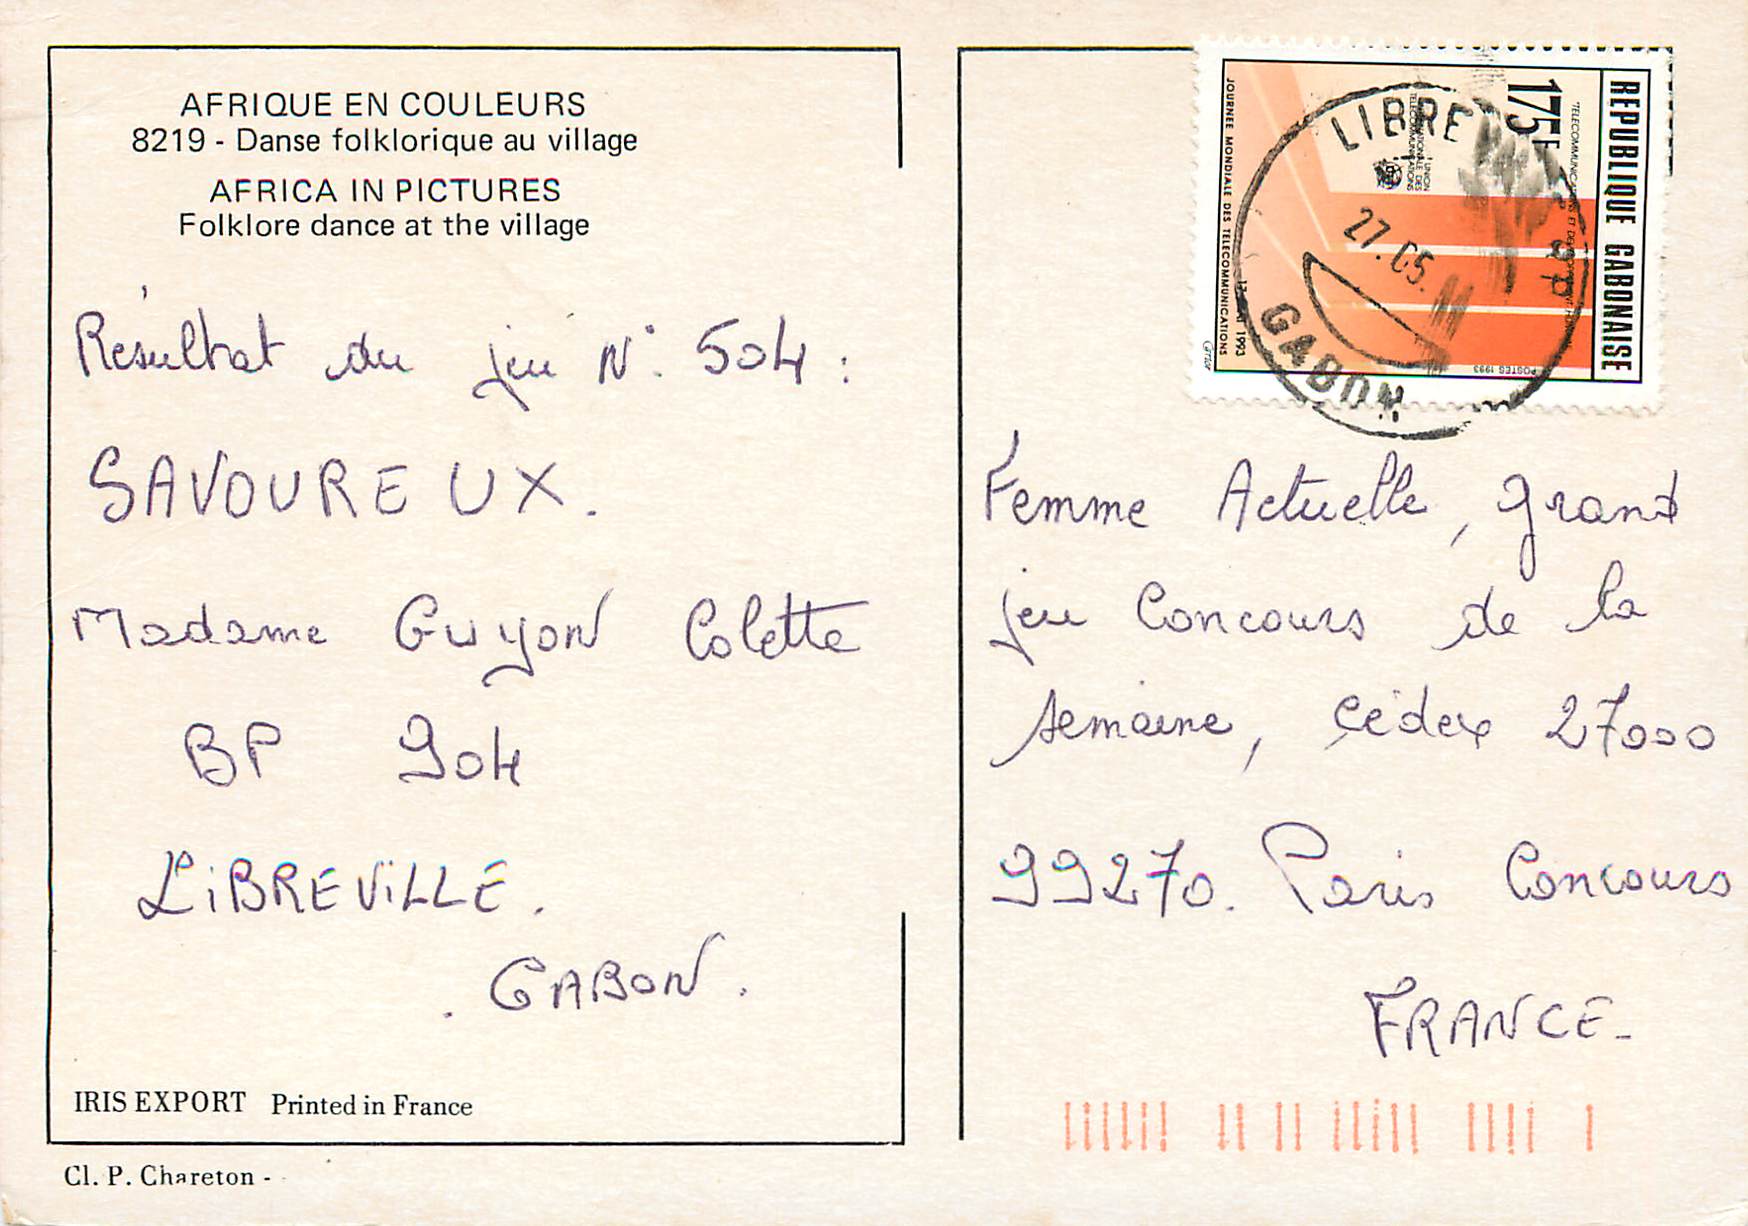 AFRIQUE EN COULEURS
8219 - Danse folklorique au village
AFRICA IN PICTURES
Folklore dance at the village
Résultat du jeu N° 504 :
SAVOUREUX.
Madame Guyon Colette
BP 904
LIBREVILLE.
. GABON.
IRIS EXPORT Printed in France
Cl. P. Chareton -
REPUBLIQUE GABONAISE
175F
UNION INTERNATIONALE DES TELECOMMUNICATIONS
JOURNEE MONDIALE DES TELECOMMUNICATIONS
1993
POSTES 1993
LIBRE
27.05.
GABON
Femme Actuelle, grand
jeu Concours de la
semaine, cédex 27000
99270. Paris Concours
FRANCE-